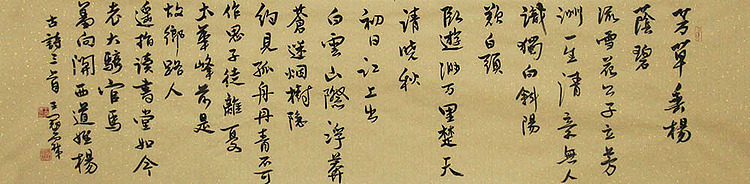 芳草垂楊
蔭碧
流雪花公子立芳
洲一生清意無人
識獨自斜陽
歎白頭
臥遊湖万里楚天
清曉秋
初日江上出
白雲山際浮莽
蒼迷烟樹隱
約見孤舟丹青不可
作思子徒離憂
太華峰前是
故鄉路人
遥指读書堂如今
老大騎官馬
羞向關西道姓楊
古詩三首 王冠